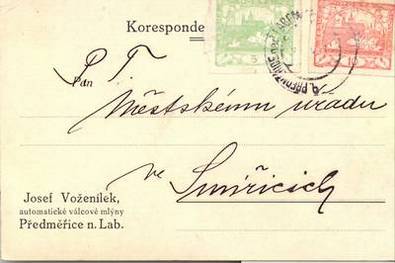 Koresponde
P. T.
Pan
Městskému úřadu
ve Smiřicích
Josef Voženílek,
automatické válcové mlýny
Předměřice n. Lab.